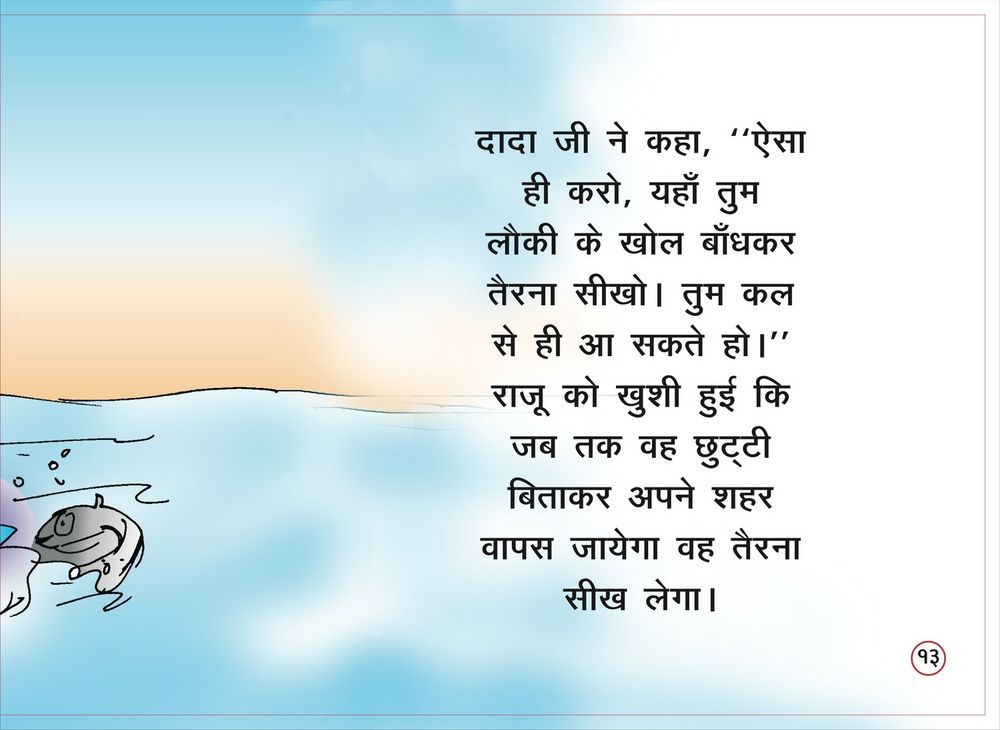 दादा जी ने कहा, ‘‘ऐसा
ही करो, यहाँ तुम
लौकी के खोल बाँधकर
तैरना सीखो। तुम कल
से ही आ सकते हो।’’
राजू को खुशी हुई कि
जब तक वह छुट्‌टी
बिताकर अपने शहर
वापस जायेगा वह तैरना
सीख लेगा।
१३